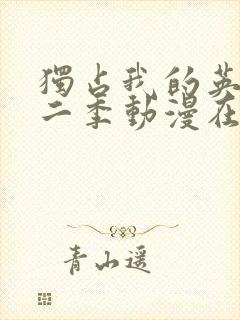 獨占我的英
二季動漫在
青山遥